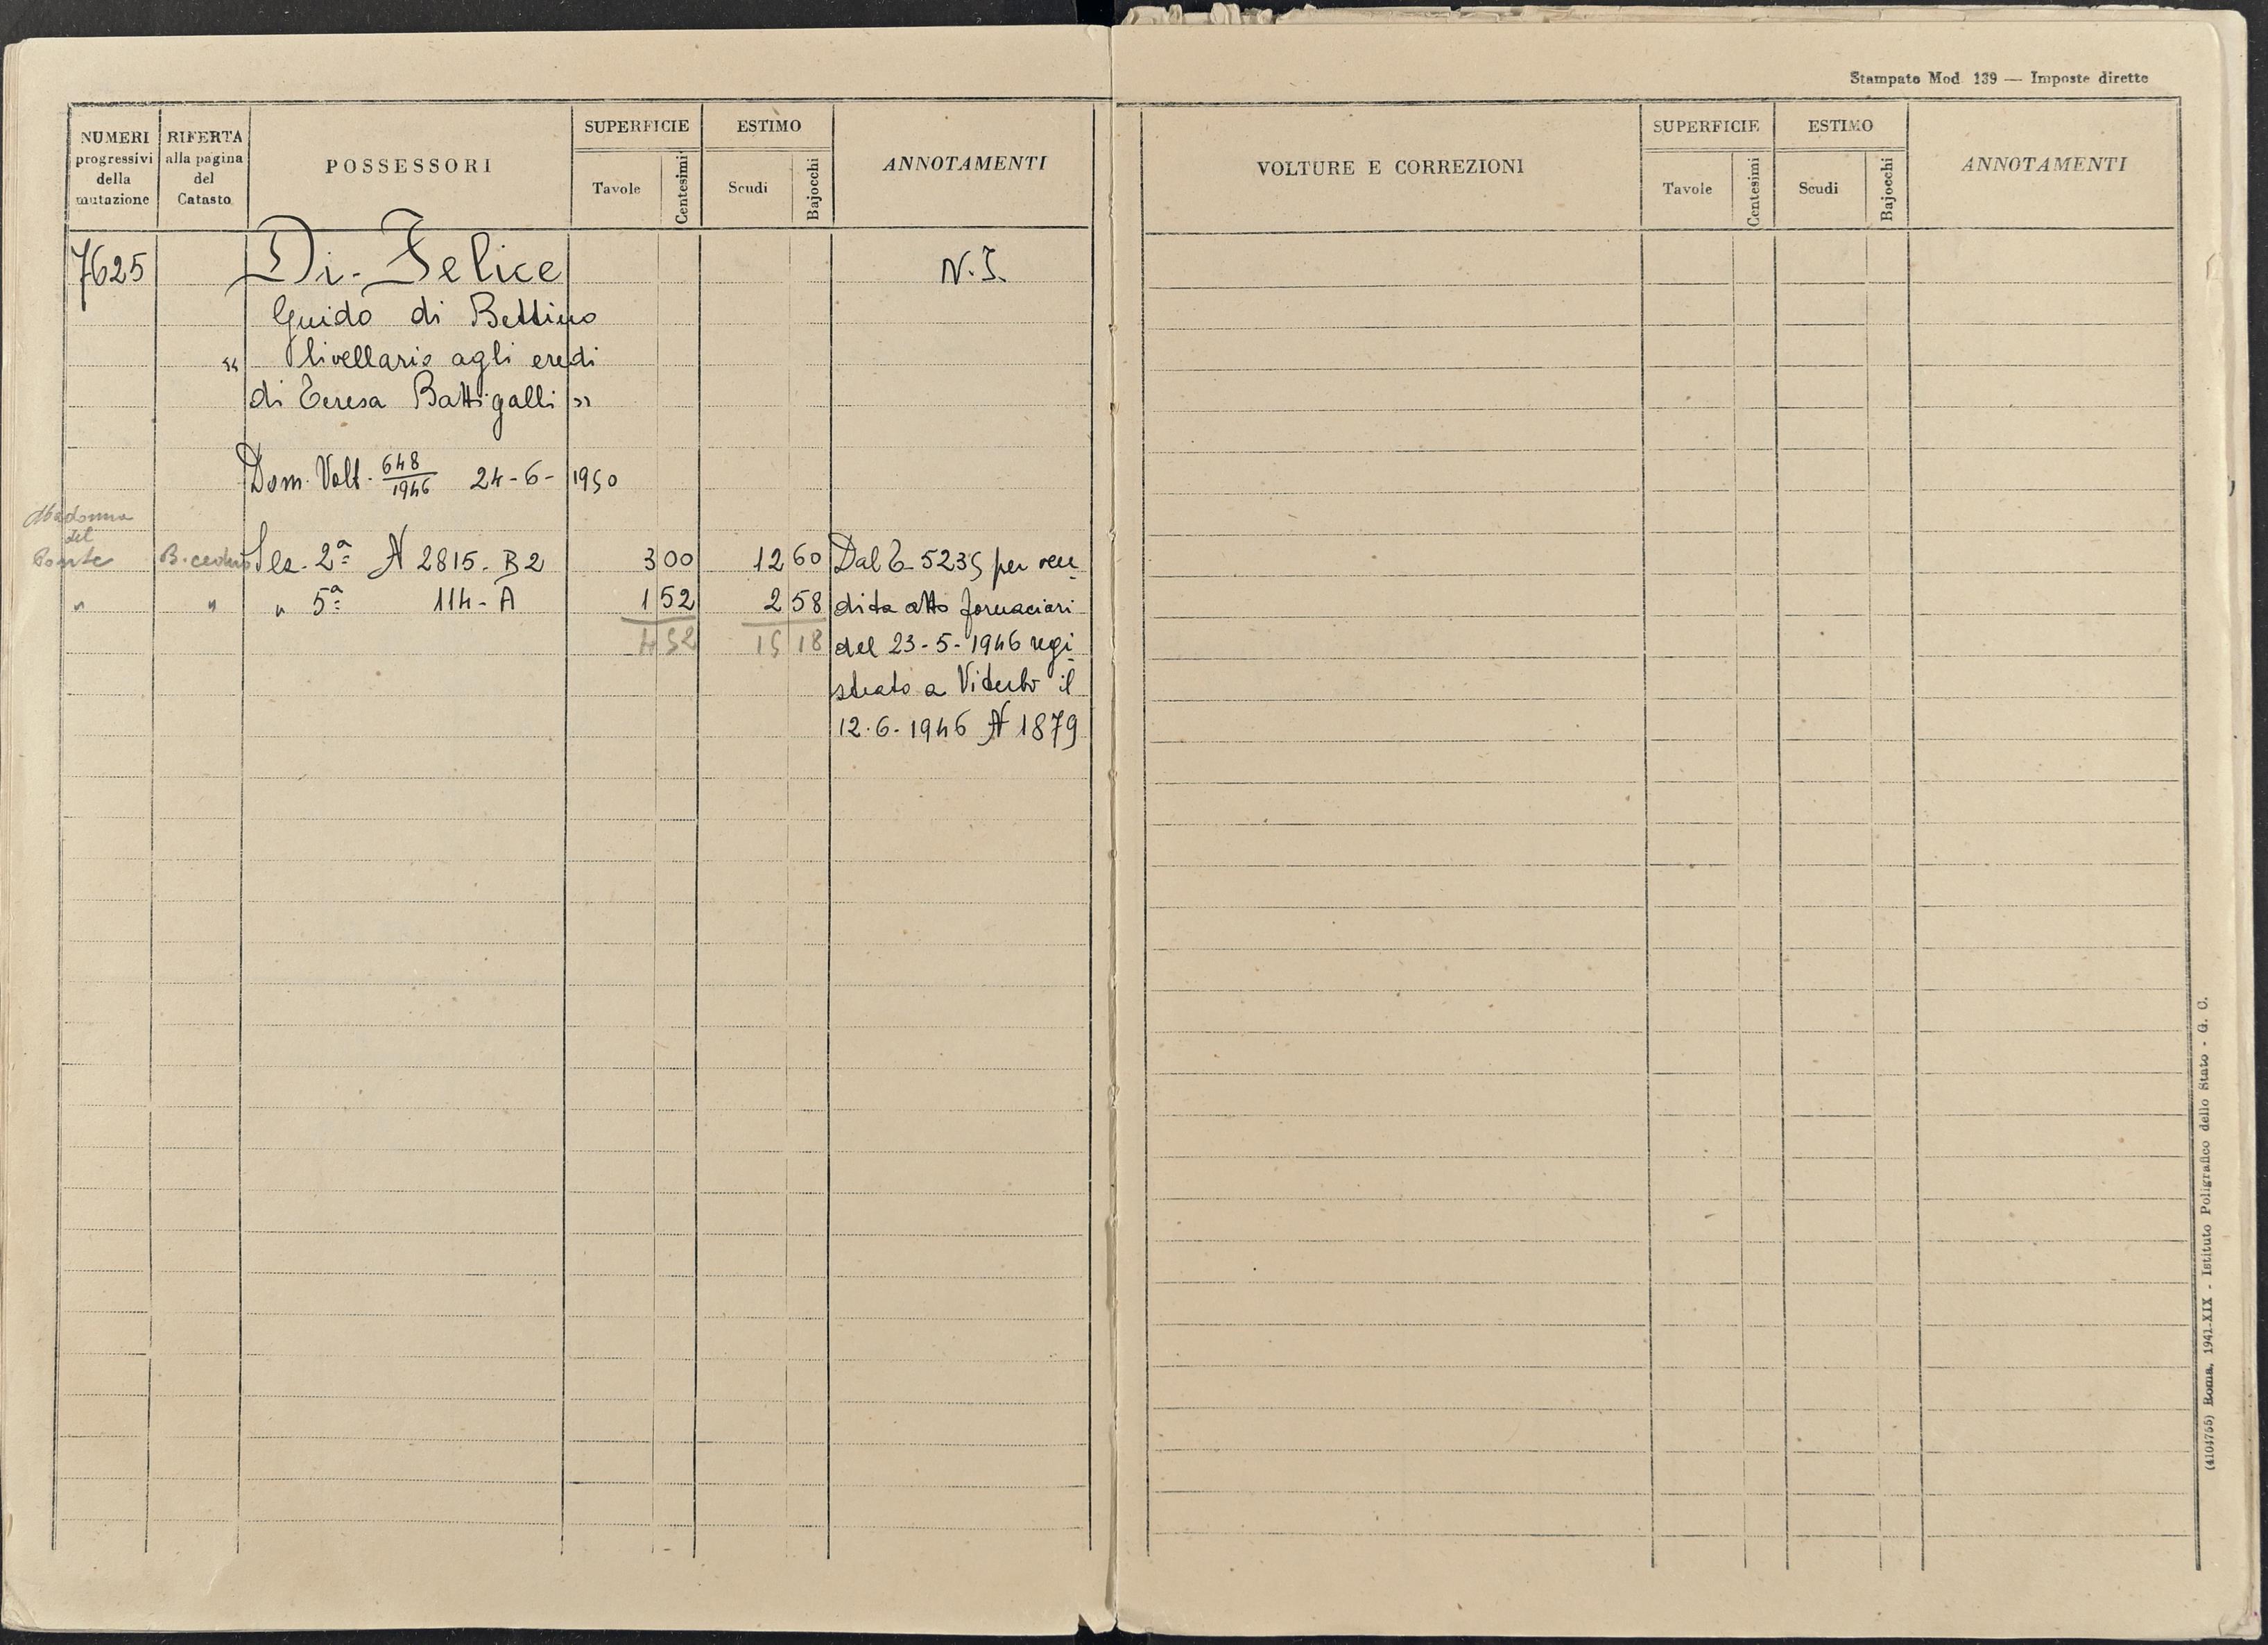 Stampato Mod 139 — Imposte dirette
NUMERI progressivi della mutazione
RIFERTA alla pagina del Catasto
POSSESSORI
SUPERFICIE
Tavole
Centesimi
ESTIMO
Scudi
Bajocchi
ANNOTAMENTI
7625 Di Felice N.I.
Guido di Bettino
" livellario agli eredi
di Teresa Battigalli "
Dom. Volt. 648/1946 24-6-1950
Madonna
del
Ponte B. ceduo Sez. 2ª N 2815. B2 3 00 12 60 Dal T 5235 per ven
" " " 5ª 114-A 1 52 2 58 dita atto Fornaciari
4 52 15 18 del 23-5-1946 regi
strato a Viterbo il
12.6.1946 N 1879
VOLTURE E CORREZIONI
SUPERFICIE
Tavole
Centesimi
ESTIMO
Scudi
Bajocchi
ANNOTAMENTI
(4104755) Roma, 1941-XIX - Istituto Poligrafico dello Stato - G. C.